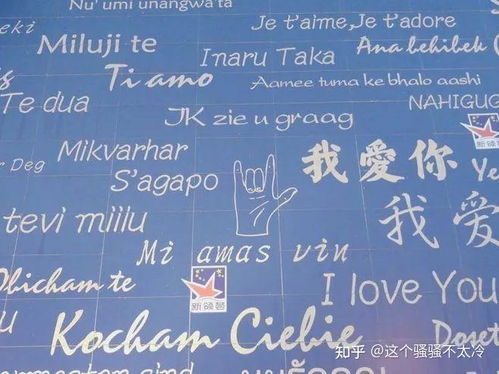 Nu' umi unangwa'ta
Je t'aime, Je t'adore
Miluji te
Inaru Taka
Ana behibek
Ti amo
Aamee tuma ke bhalo aashi
Te dua
NAHIGUG
JK zie u graag
Mikvarhar
我愛你
Der Deg
S'agapo
我愛
tevi miilu
Mi amas vin
Obicham te
新領營
I love You
Kocham Ciebie
Doset
知乎 @这个骚骚不太冷